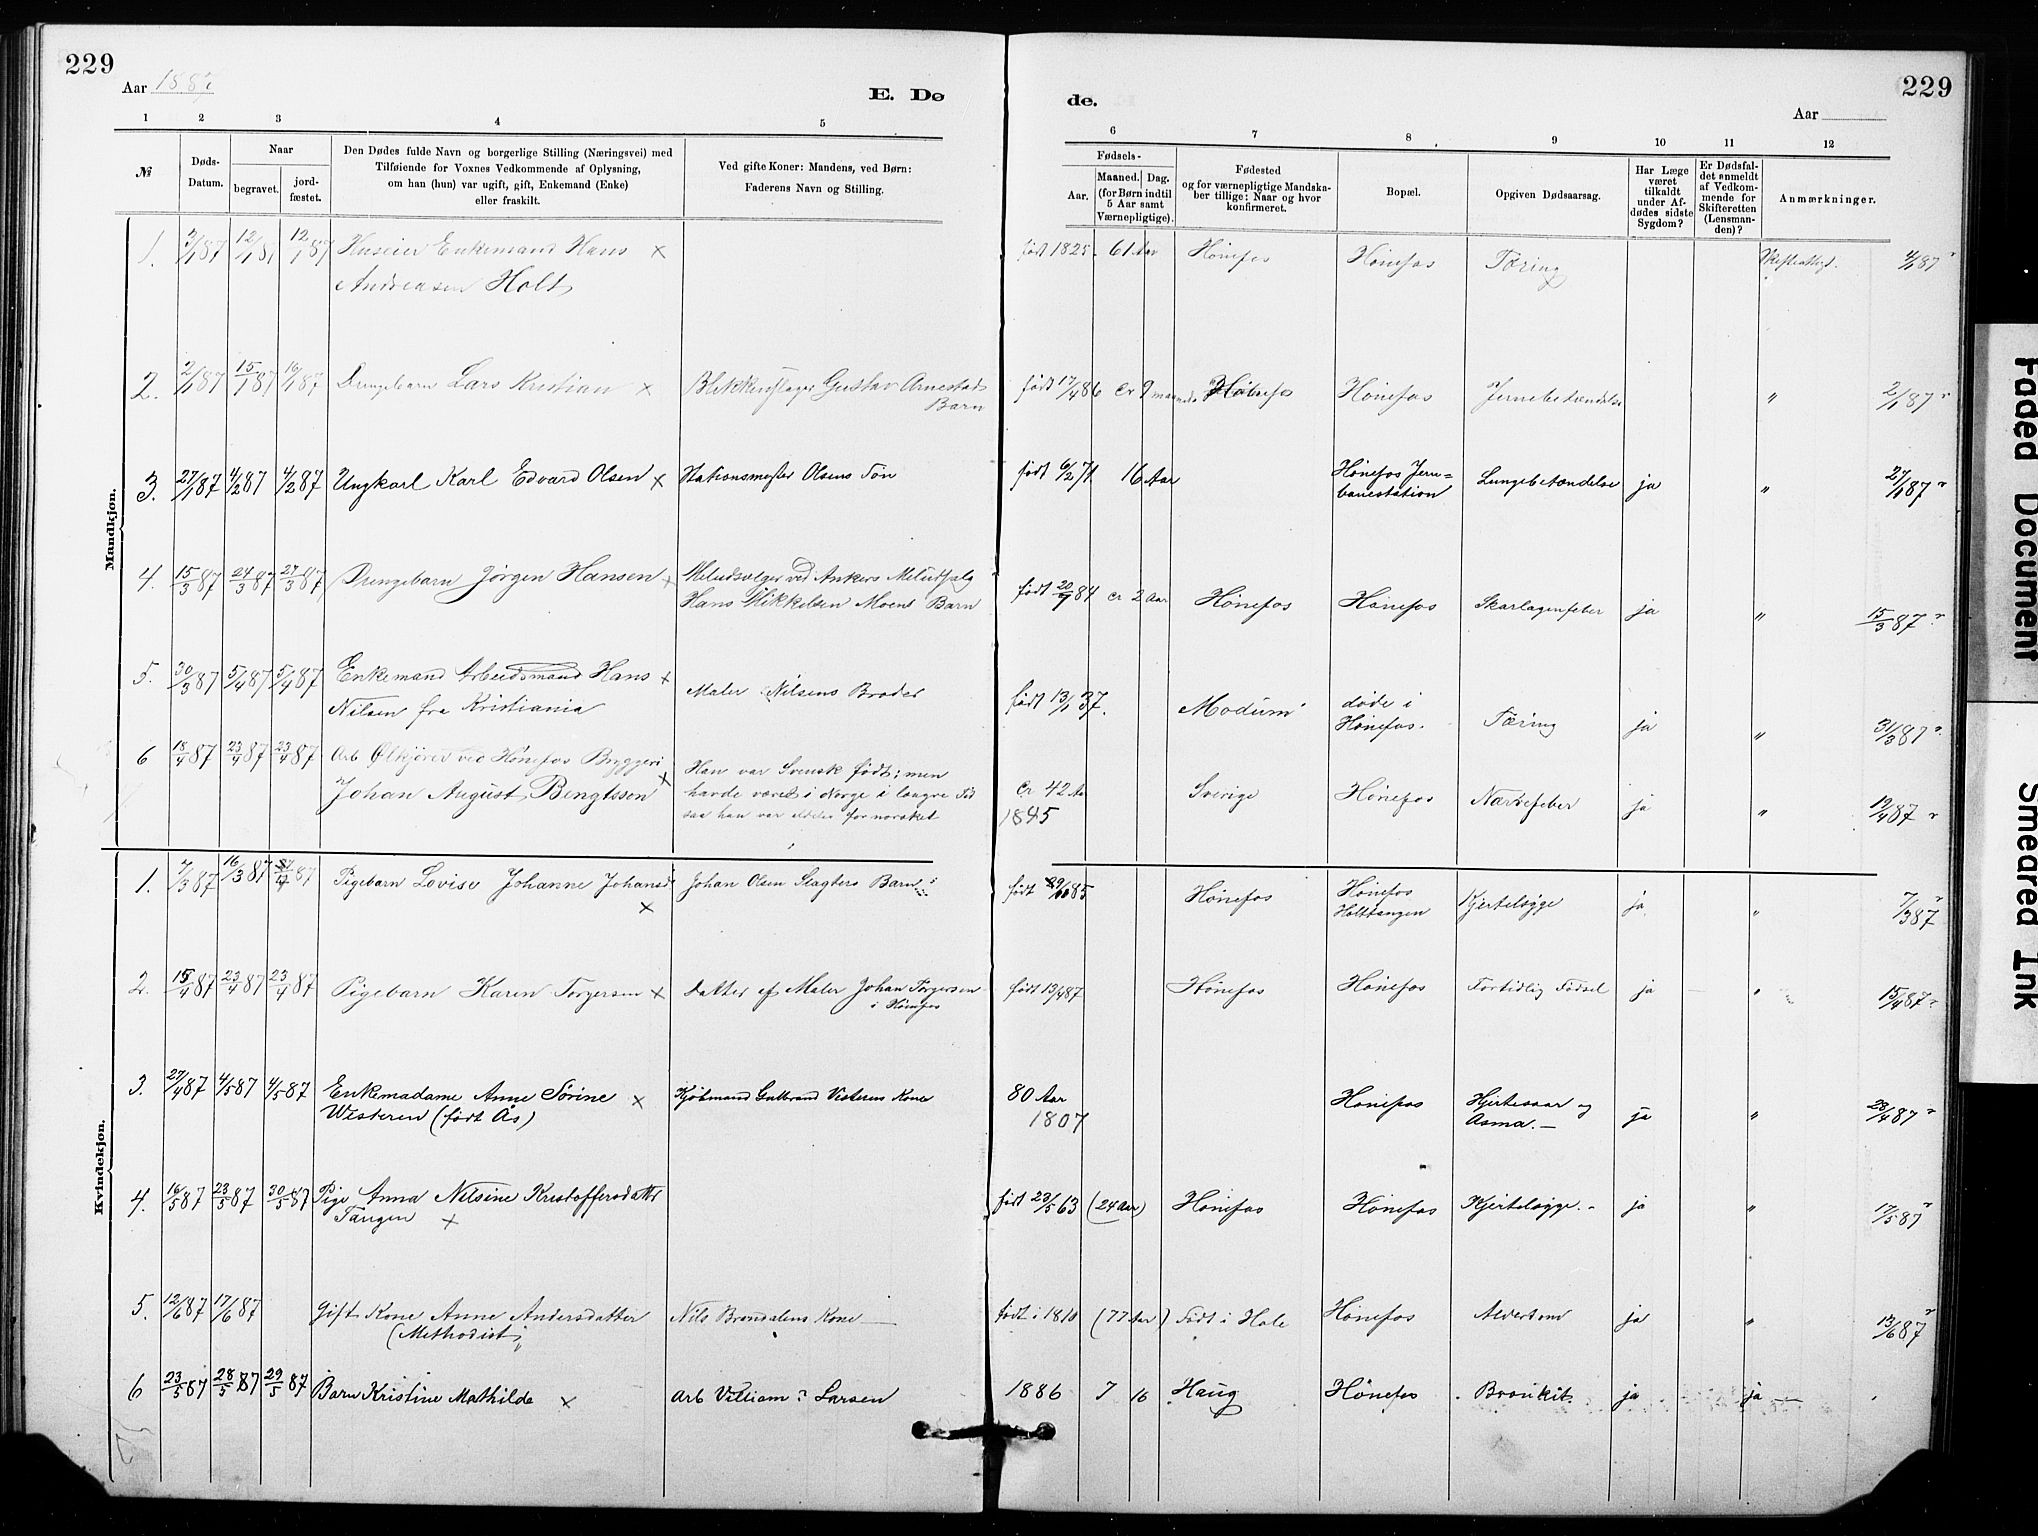 229
Aar 1887
E. Dø
1 2 3 4 5
№
Døds-Datum.
Naar
begravet.
jord-fæstet.
Den Dødes fulde Navn og borgerlige Stilling (Næringsvei) med
Tilføiende for Voxnes Vedkommende af Oplysning,
om han (hun) var ugift, gift, Enkemand (Enke)
eller fraskilt.
Ved gifte Koner: Mandens, ved Børn:
Faderens Navn og Stilling.
Mandkjøn.
1. 3/1 87 12/1 87 12/1 87 Huseier Enkemand Hans ×
Andreasen Holt
2. 2/1 87 15/1 87 16/1 87 Drengebarn Lars Kristian × Blikkenslager Gustav Arnestads
Barn
3. 27/1 87 4/2 87 4/2 87 Ungkarl Karl Edvard Olsen × Stationsmester Olsens Søn
4. 15/3 87 24/3 87 27/3 87 Drengebarn Jørgen Hansen × Meludsælger ved Ankers Meludsalg
Hans Mikkelsen Moens Barn
5. 30/3 87 5/4 87 5/4 87 Enkemand Arbeidsmand Hans ×
Nilsen fra Kristiania Maler Nilsens Broder
6 18/4 87 23/4 87 23/4 87 Arb Ølkjører ved Hønefos Bryggeri
Johan August Bengtssen × Han var Svensk født; men
havde været i Norge i længre Tid
saa han var for norsket
Kvindekjøn.
1. 7/3 87 16/3 87 87 Pigebarn Lovise Johanne Johansd × Johan Olsen Slagters Barn
2. 15/4 87 23/4 87 23/4 87 Pigebarn Karen Torgersen × Datter af Maler Johan Torgersen
i Hønefos
3. 27/4 87 4/5 87 4/5 87 Enkemadame Anne Sørine ×
Westeren (født Ås) Kjøbmand Gulbrand Visterens Kone
4. 16/5 87 23/5 87 30/5 87 Pige Anna Nilsine Kristoffersdatter
Tangen ×
5. 12/6 87 17/6 87 Gift Kone Anne Andersdatter
(Methodist) Nils Brøndalens Kone
6 23/5 87 28/5 87 29/5 87 Barn Kristine Mathilde × Arb Villiam ? Larsen
229
de.
Aar
6 7 8 9 10 11 12
Fødsels-
Aar.
Maaned. Dag.
(for Børn indtil
5 Aar samt
Værnepligtige).
Fødested
og for værnepligtige Mandska-
ber tillige: Naar og hvor
konfirmeret.
Bopæl.
Opgiven Dødsaarsag.
Har Læge
været
tilkaldt
under Af-
dødes sidste
Sygdom?
Er Dødsfal-
det anmeldt
af Vedkom-
mende for
Skifteretten
(Lensman-
den)?
Anmærkninger.
født 1825. 61 Aar Hønefos Hønefos Tæring Skifteattest. 4/1 87
født 17/4 86 cr 9 maaneder Hønefos Hønefos Jernebetændelse " 2/1 87 "
født 6/2 71 16 Aar Hønefos Jern=
banestation Lungebetændelse ja " 27/1 87 "
født 20/9 84 cr 2 Aar Hønefos Hønefos Skarlagenfeber ja " 15/3 87 "
født 13/1 37. Modum døde i
Hønefos. Tæring ja " 31/3 87 "
cr 42 Aar
1845 Sverige Hønefos Nervefeber ja " 19/4 87 "
født 85 Hønefos Hønefos
Holttangen Kjertelsyge ja " 7/3 87 "
født 13/4 87 Hønefos Hønefos Fortidlig Fødsel ja " 15/4 87 "
80 Aar
1807 Hønefos Hjertesaar og
Asma. — ja " 28/4 87 "
født 20/5 63 (24 Aar) Hønefos Hønefos Kjertelsyge. - ja " 17/5 87 "
født i 1810 (77 Aar) Født i Hole Hønefos Alderdom ja " 13/6 87 "
1886 7 16 Haug Hønefos Bronkit. ja ja —
Faded Document
Smeared Ink